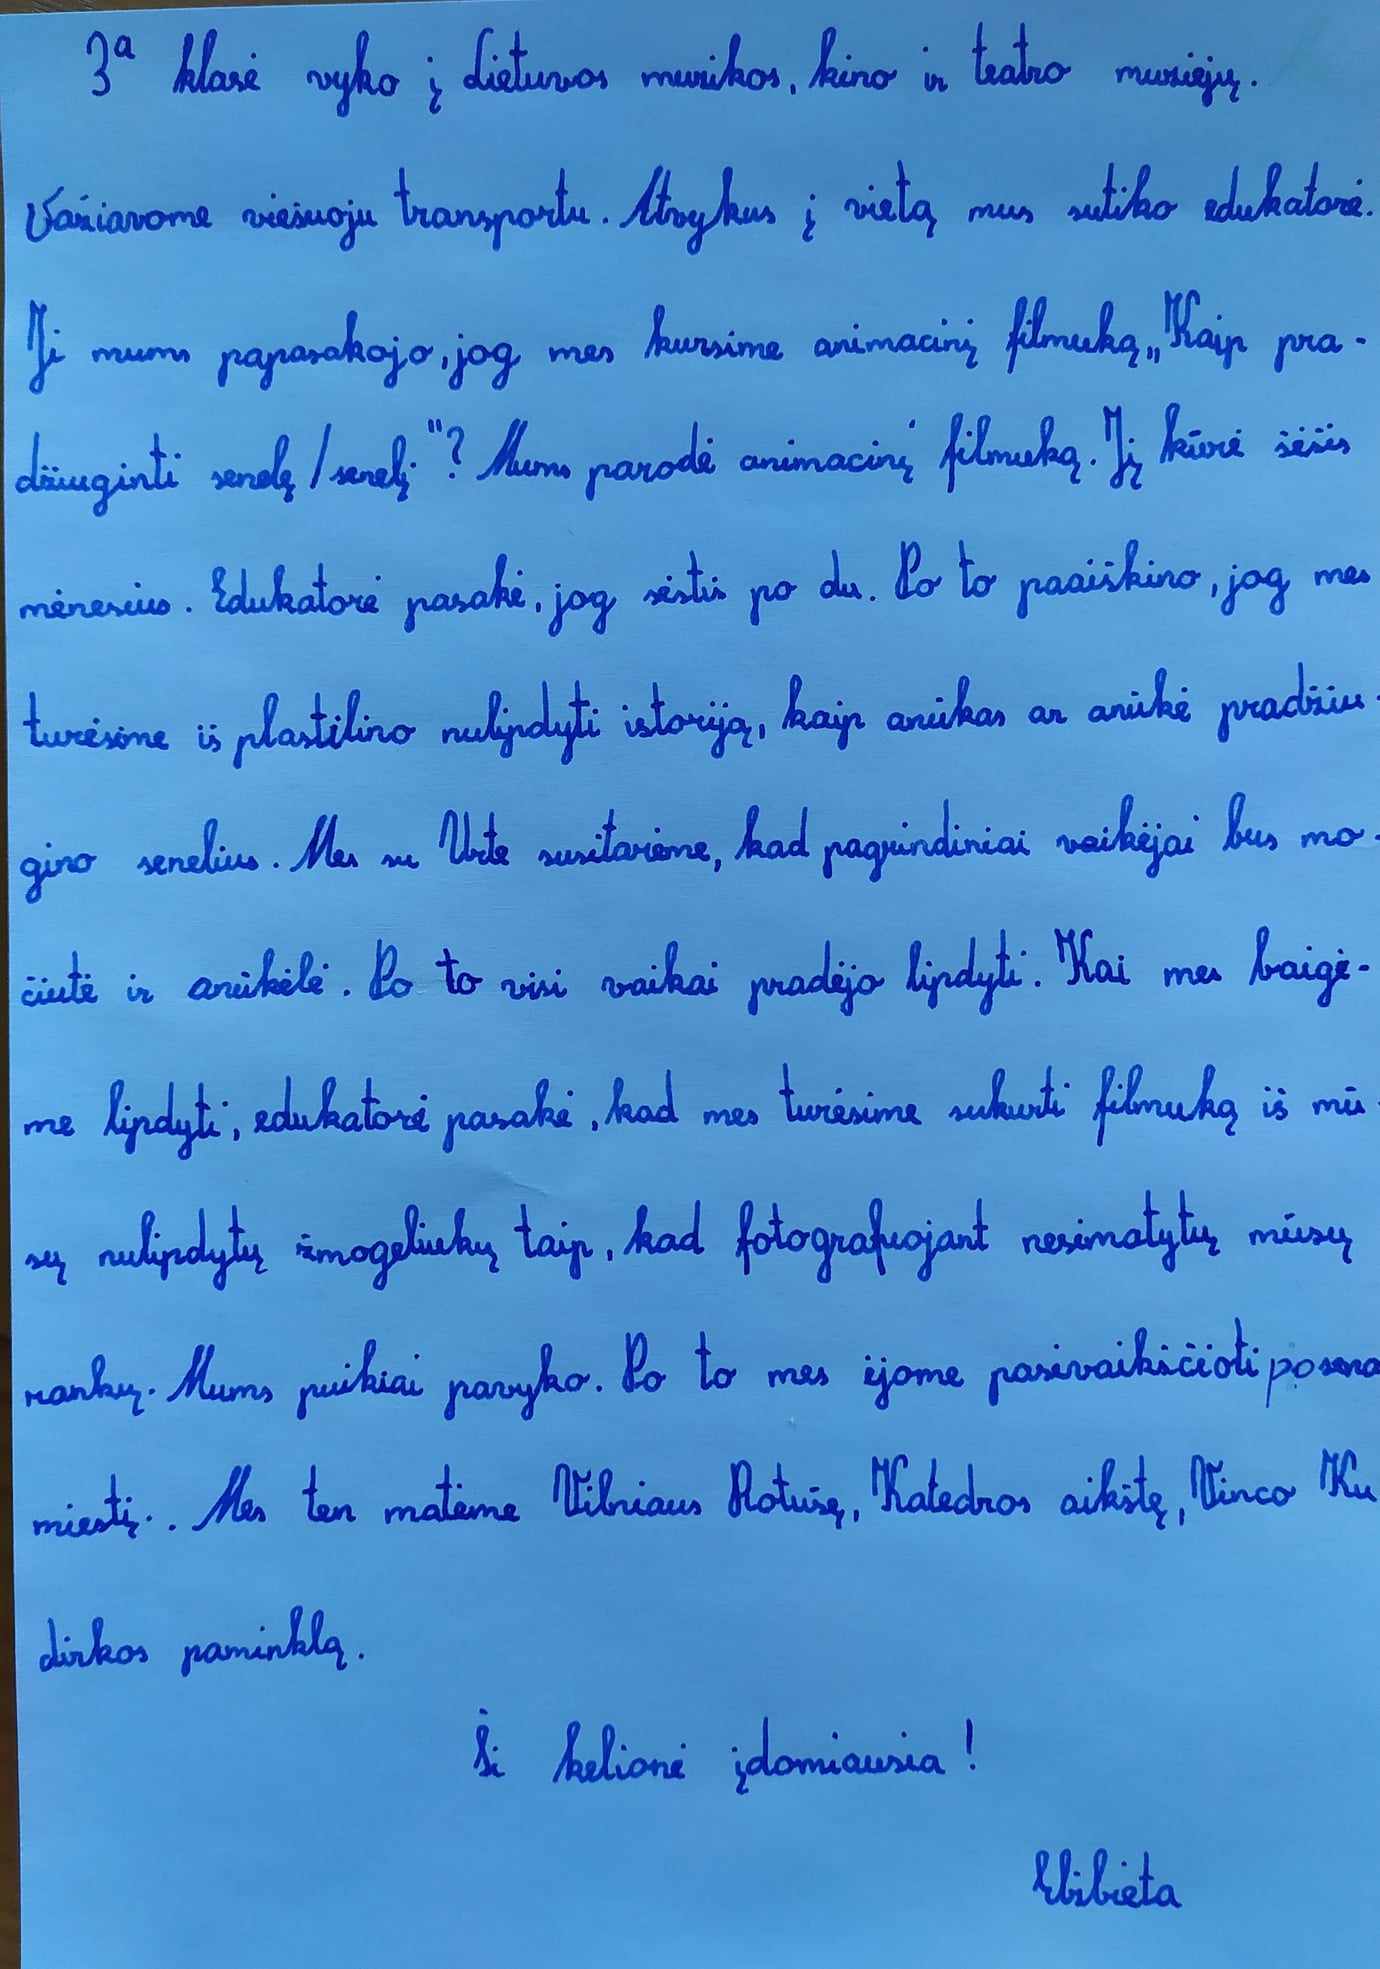 3ª klasė vyko į Lietuvos muzikos, kino ir teatro muziejų.
Važiavome viešuoju transportu. Atvykus į vietą mus sutiko edukatorė.
Ji mums papasakojo, jog mes kursime animacinį filmuką „Kaip pra-
džiuginti senelę/senelį"? Mums parodė animacinį filmuką. Jį kūrė šešis
mėnesius. Edukatorė pasakė, jog sėstis po du. Po to paaiškino, jog mes
turėsime iš plastilino nulipdyti istoriją, kaip anūkas ar anūkė pradžiu-
gino senelius. Mes su Urte susitarėme, kad pagrindiniai veikėjai bus mo-
čiutė ir anūkėlė. Po to visi vaikai pradėjo lipdyti. Kai mes baigė-
me lipdyti, edukatorė pasakė, kad mes turėsime sukurti filmuką iš mū-
sų nulipdytų žmogeliukų taip, kad fotografuojant nesimatytų mūsų
rankų. Mums puikiai pavyko. Po to mes ėjome pasivaikščioti po sena
miestį. Mes ten matėme Vilniaus Rotušę, Katedros aikštę, Vinco Ku
dirkos paminklą.
Ši kelionė įdomiausia!
Elžbieta